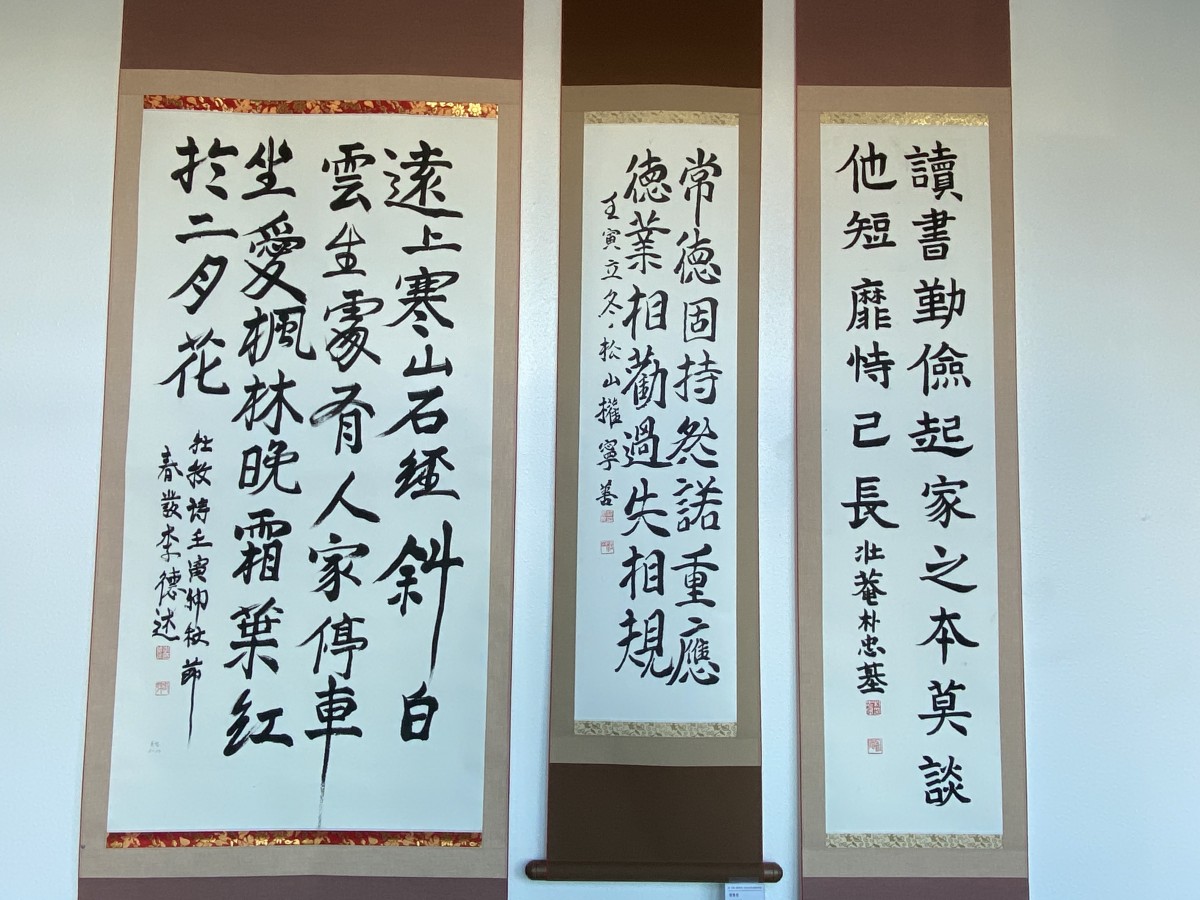 讀書勤儉起家之本莫談
他短靡恃己長
壯菴朴忠基
常德固持然諾重應
德業相勸過失相規
壬寅立冬松山權寧善
遠上寒山石經斜白
雲生處有人家停車
坐愛楓林晚霜葉紅
於二月花
杜牧詩壬寅仲秋節
春李德述